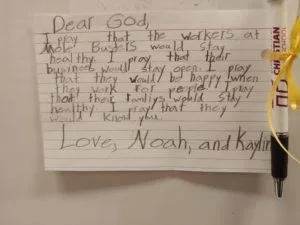 Dear God,
I pray that the workers at
Mole Burgers would stay
healthy. I pray that their
business would stay open. I pray
that they would be happy when
they work for people. I pray
that their familys would stay
healthy. I pray that they
would know you.
Love, Noah, and Kaylin
CHRISTIAN